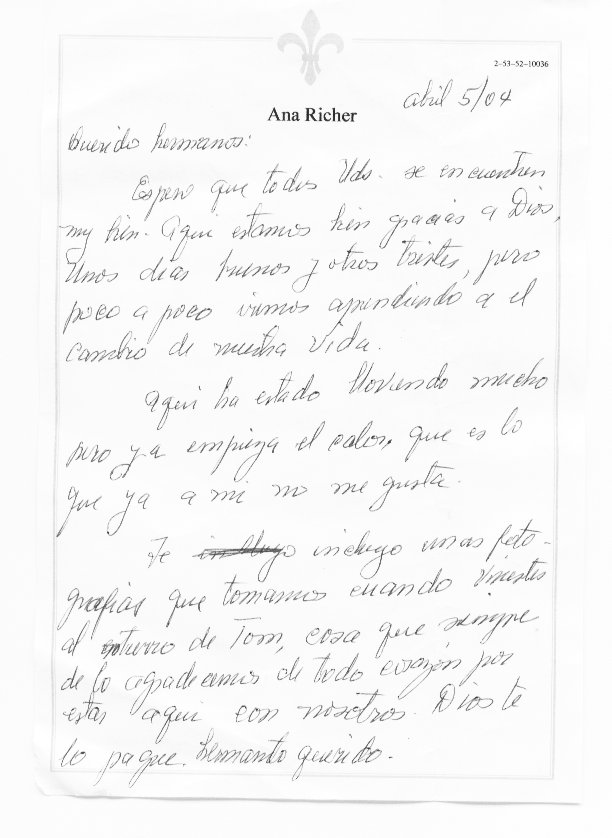 2-53-52-10036
abril 5/04
Ana Richer
Querido hermanos:
Espero que todos Uds. se encuentren
my bien. Aqui estamos bien gracias a Dios,
Unos dias buenos y otros tristes, pero
poco a poco iremos aprendiendo a el
cambio de nuestra vida.
Aqui ha estado lloviendo mucho
pero ya empieza el calor, que es lo
que ya a mi no me gusta.
Te incluyo unas foto-
grafias que tomamos cuando vinistes
al entierro de Tom, cosa que siempre
de lo agradecemos de todo corazón por
estar aqui con nosotros. Dios te
lo pague. hermanito querido.